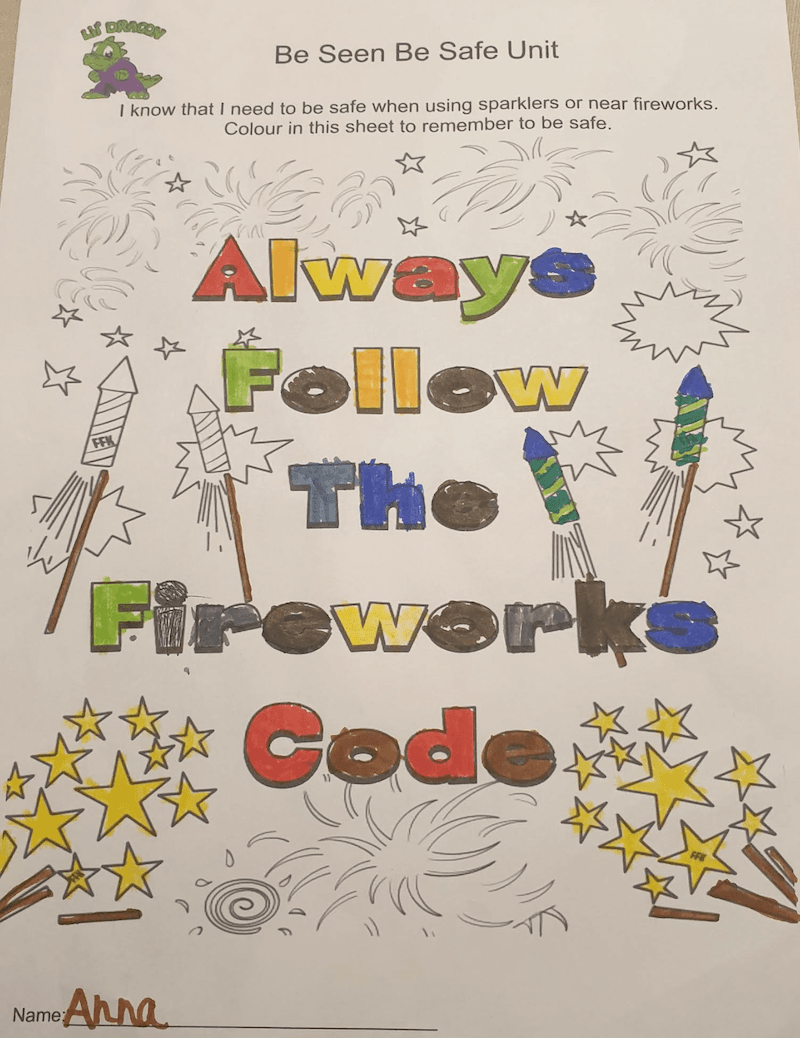 LIL' DRAGON
Be Seen Be Safe Unit
I know that I need to be safe when using sparklers or near fireworks.
Colour in this sheet to remember to be safe.
Always
Follow
FFK
The
Fireworks
Code
FFK
FFK
Name: Anna